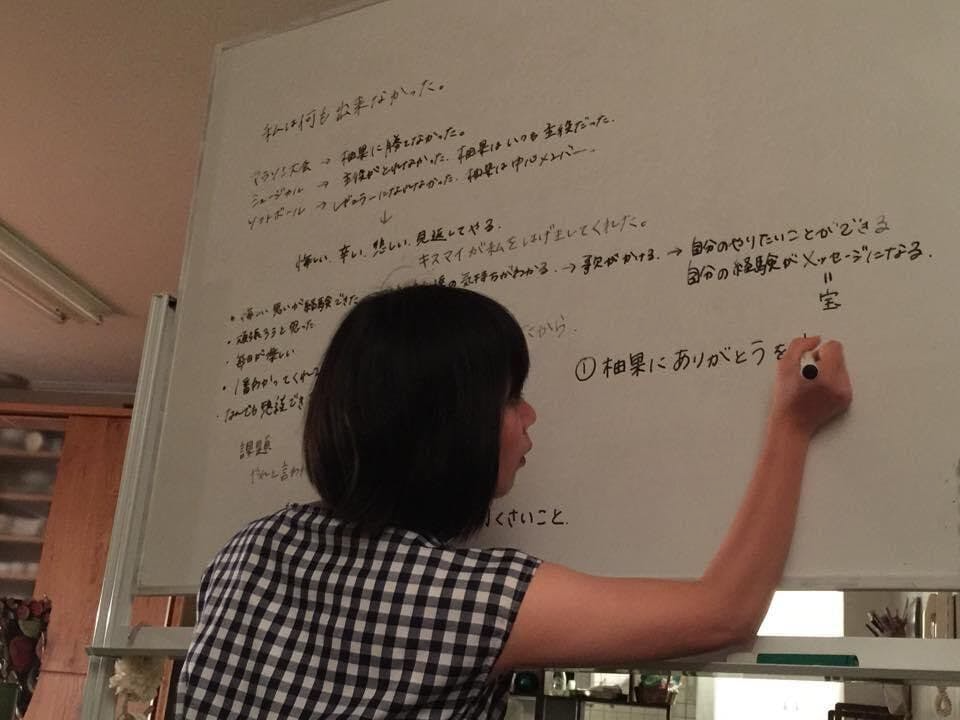 私は何も出来なかった。
マラソン大会 → 柚果に勝てなかった。
ミュージカル → 主役がとれなかった. 柚果はいつも主役だった.
ソフトボール → レギュラーになれなかった. 柚果は中心メンバー.
↓
悔しい. 辛い. 悲しい. 見返してやる.
キスマイが私をはげましてくれた。
・悔しい思いが経験できた の気持ちがわかる. → 歌がかける. → 自分のやりたいことができる
自分の経験がメッセージになる.
=
宝
・頑張ろうと思った
・毎日が楽しい
さから.
・なんでも
課題
やれと言わ
くさいこと.
① 柚果にありがとうを